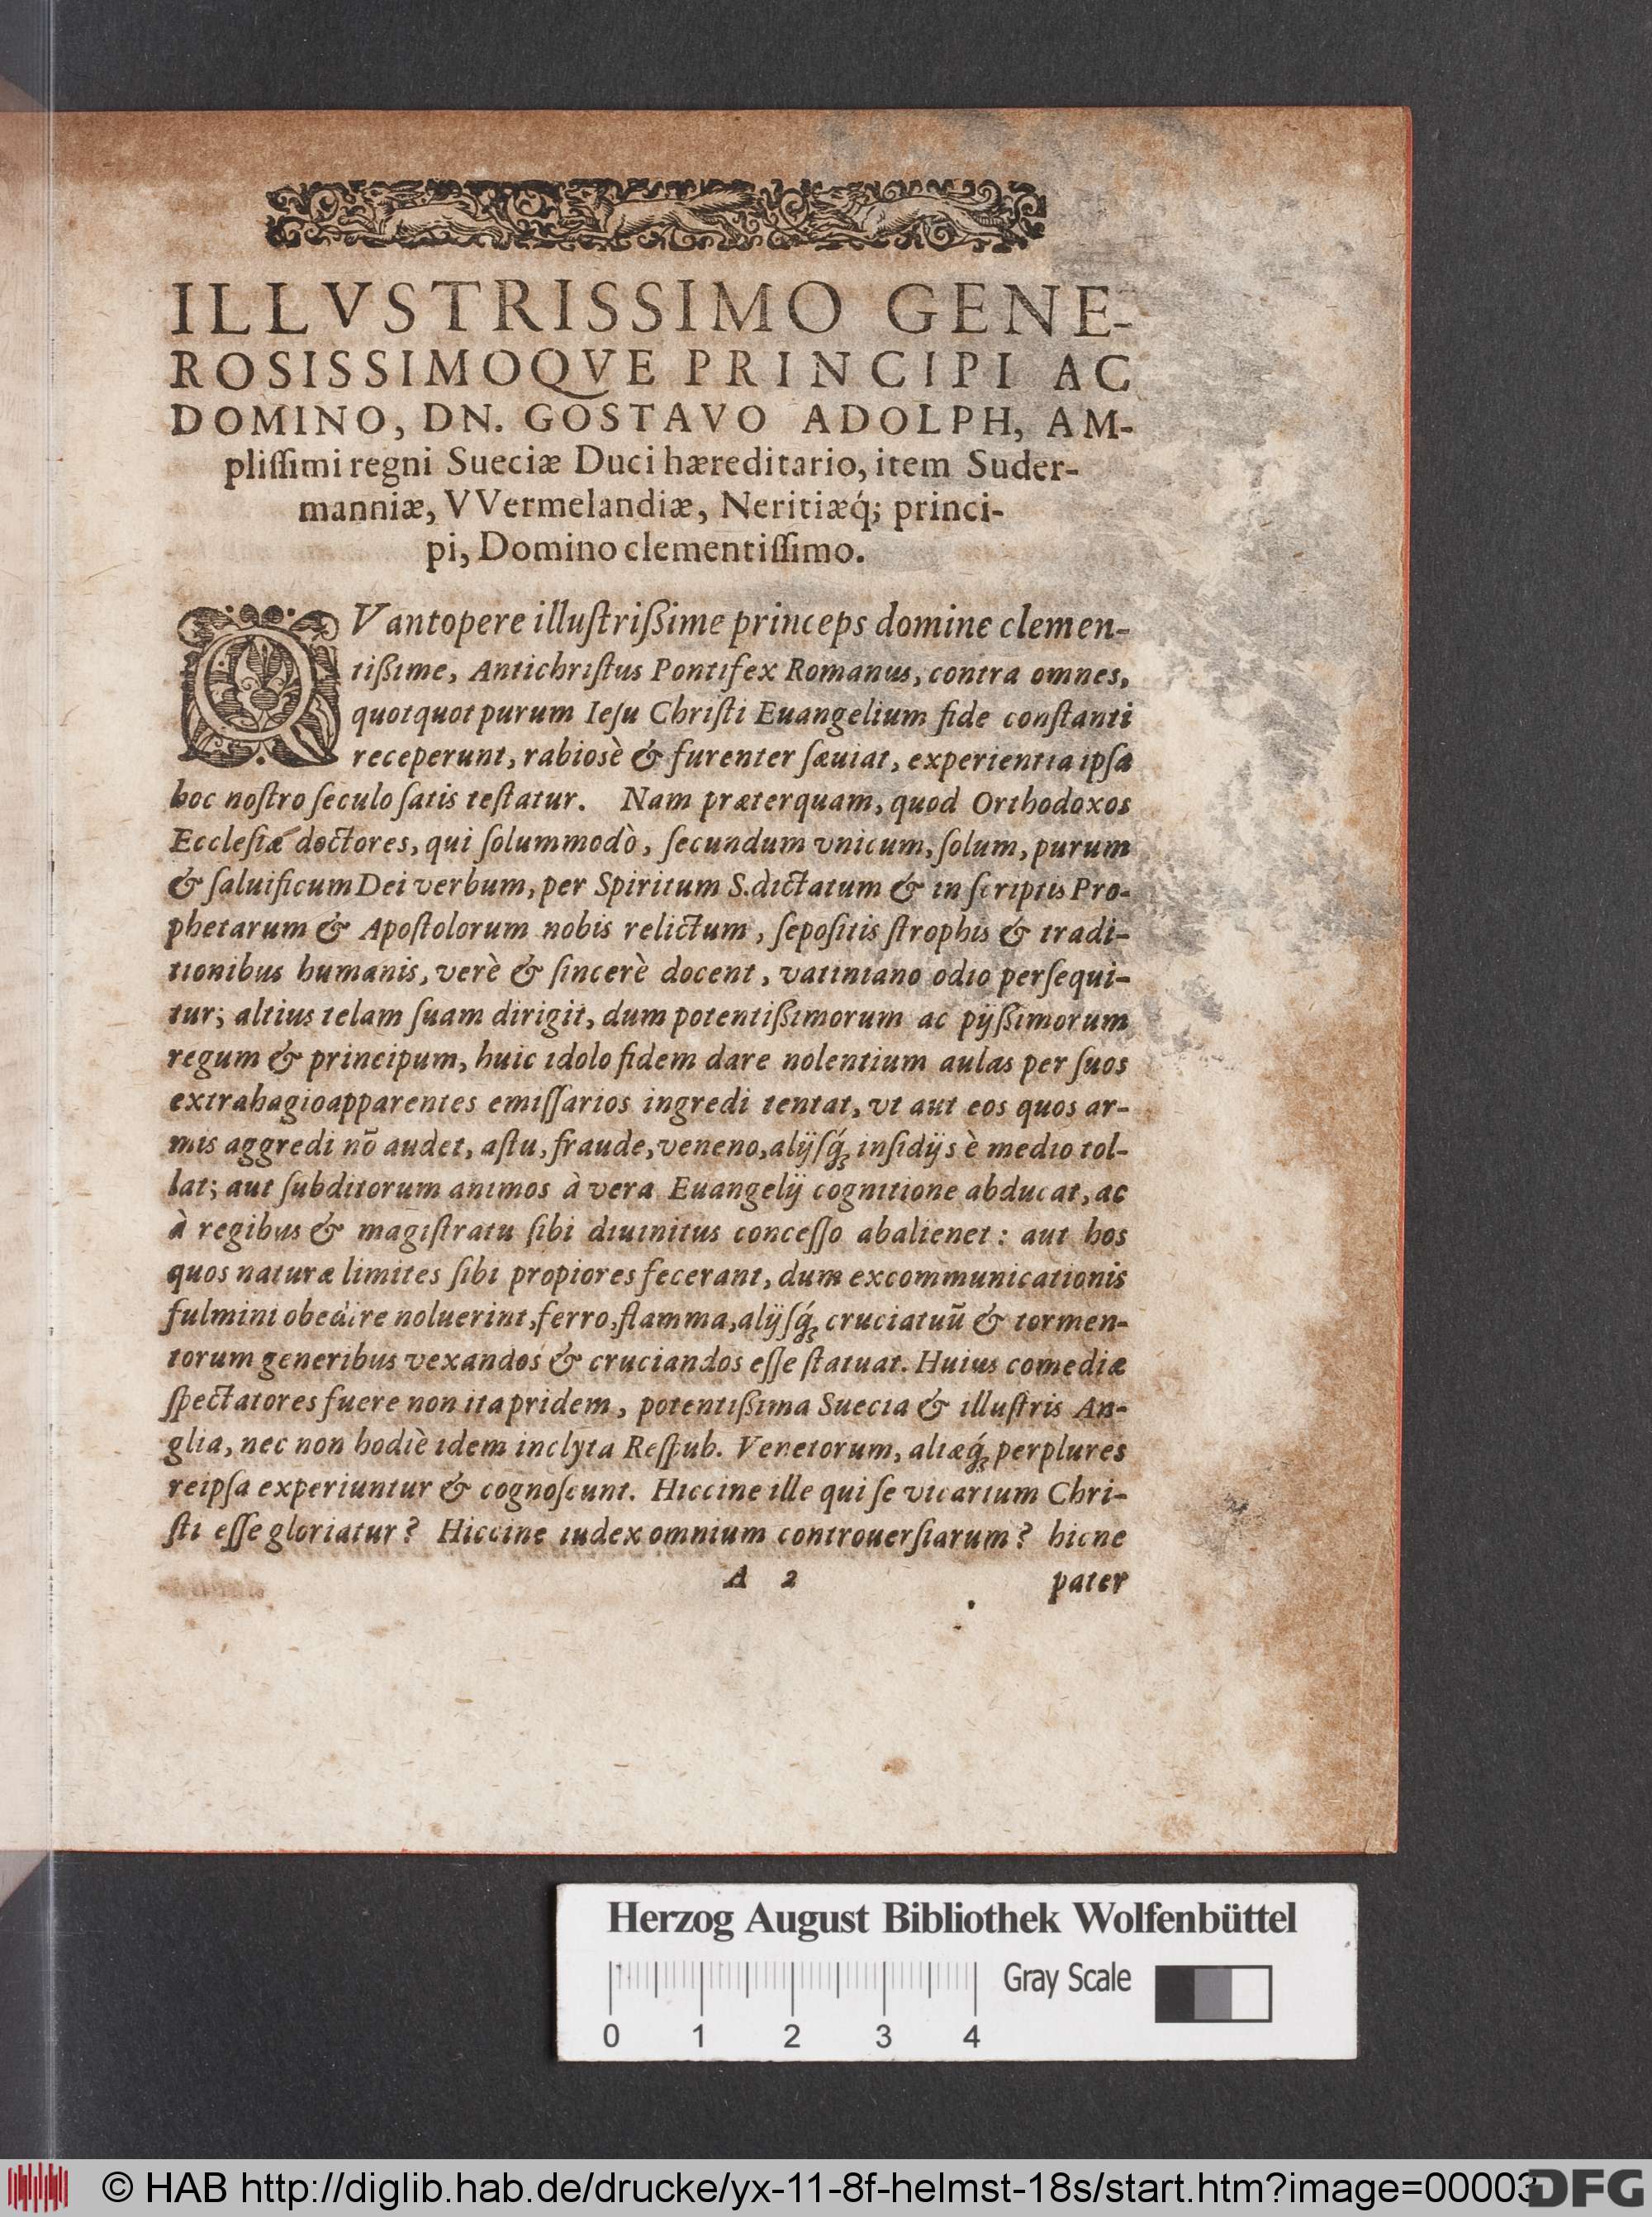 ILLVSTRISSIMO GENE-
ROSISSIMOQVE PRINCIPI AC
DOMINO, DN. GOSTAVO ADOLPH, AM-
pliſſimi regni Sueciæ Duci hæreditario, item Suder-
manniæ, VVermelandiæ, Neritiæq́; princi-
pi, Domino clementiſſimo.
QVantopere illuſtrißime princeps domine clemen-
tißime, Antichriſtus Pontifex Romanus, contra omnes,
quotquot purum Ieſu Chriſti Euangelium fide conſtanti
receperunt, rabiosè & furenter ſæuiat, experientia ipſa
hoc noſtro ſeculo ſatis teſtatur. Nam præterquam, quod Orthodoxos
Eccleſiæ doctores, qui ſolummodò, ſecundum vnicum, ſolum, purum
& ſaluificum Dei verbum, per Spiritum S. dictatum & in ſcriptis Pro-
phetarum & Apoſtolorum nobis relictum, ſepoſitis ſtrophis & tradi-
tionibus humanis, verè & ſincerè docent, vatiniano odio perſequi-
tur; altius telam ſuam dirigit, dum potentißimorum ac pijßimorum
regum & principum, huic idolo fidem dare nolentium aulas per ſuos
extrahagioapparentes emiſſarios ingredi tentat, vt aut eos quos ar-
mis aggredi nō audet, aſtu, fraude, veneno, alijſq́; inſidijs è medio tol-
lat; aut ſubditorum animos à vera Euangelij cognitione abducat, ac
à regibus & magiſtratu ſibi diuinitus conceſſo abalienet: aut hos
quos naturæ limites ſibi propiores fecerant, dum excommunicationis
fulmini obedire noluerint, ferro, flamma, alijſq́; cruciatuū & tormen-
torum generibus vexandos & cruciandos eſſe ſtatuat. Huius comediæ
ſpectatores fuere non ita pridem, potentißima Suecia & illuſtris An-
glia, nec non hodiè idem inclyta Reſpub. Venetorum, aliæq́; perplures
reipſa experiuntur & cognoſcunt. Hiccine ille qui ſe vicarium Chri-
ſti eſſe gloriatur? Hiccine iudex omnium controuerſiarum? hicne
A 2 pater
Herzog August Bibliothek Wolfenbüttel
Gray Scale
0 1 2 3 4
© HAB http://diglib.hab.de/drucke/yx-11-8f-helmst-18s/start.htm?image=00003
DFG